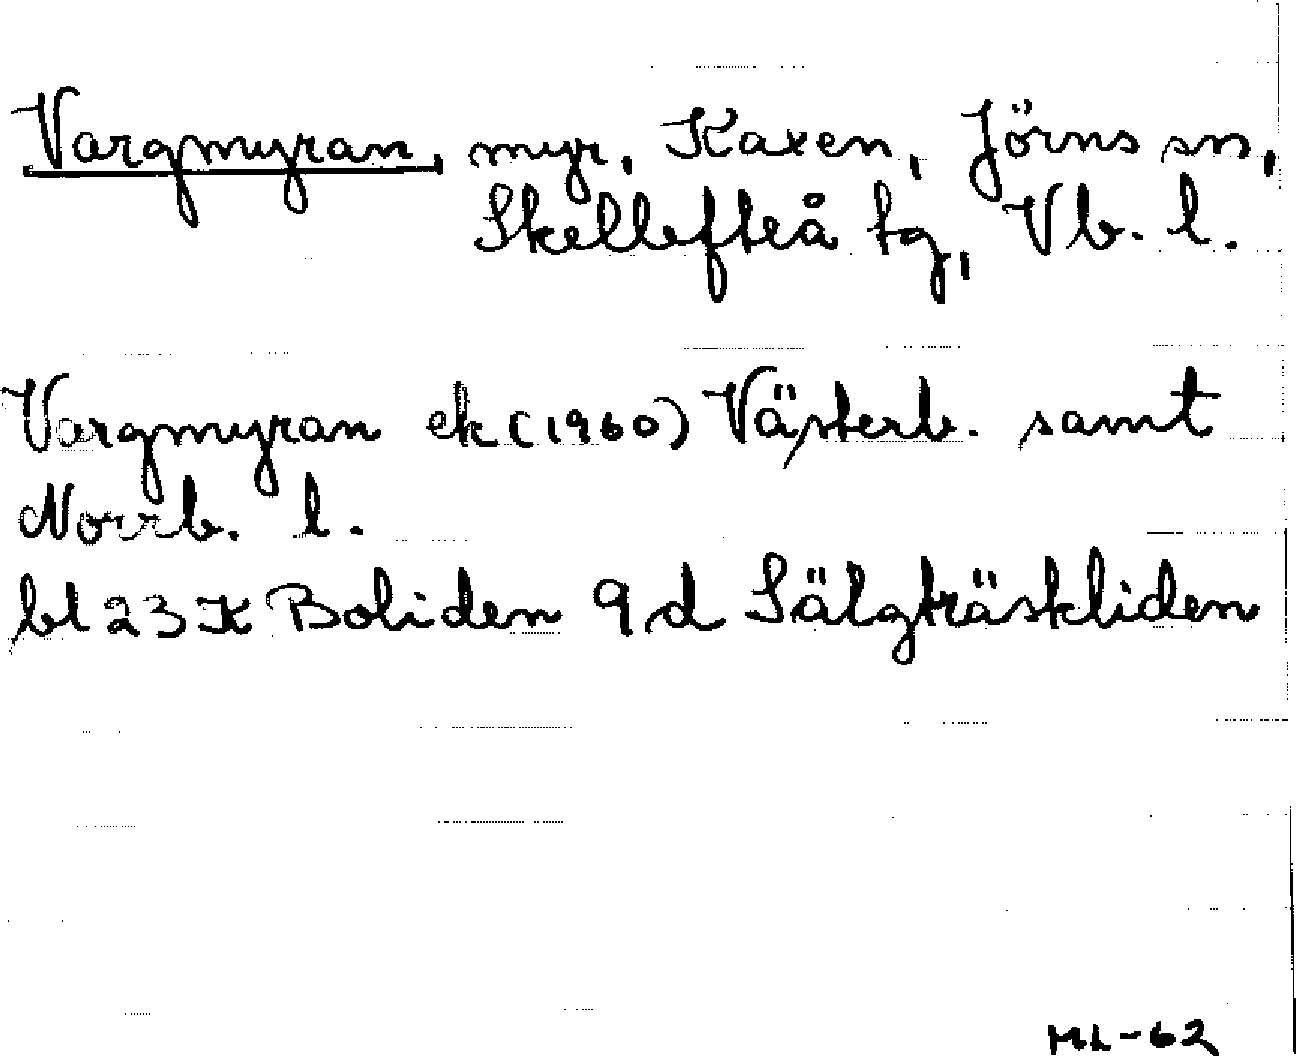 Vargmyran, myr, Kaxen, Jörns sn,
Skellefteå tg, Vb. l.
Vargmyran ek (1960) Västerb. samt
Norrb. l.
bl 23 K Boliden 9 d Sälgträskliden
ML-62